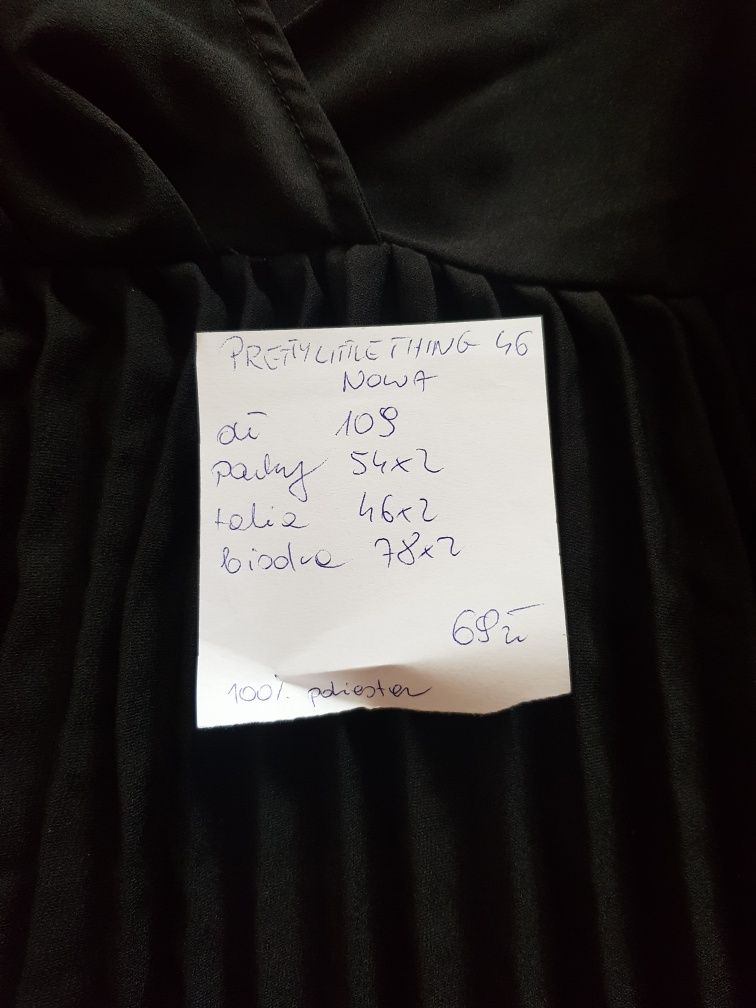 PRETTYLITTLETHING 46
NOWA
dł 109
pachy 54x2
talia 46x2
biodra 78x2
69zł
100% poliester